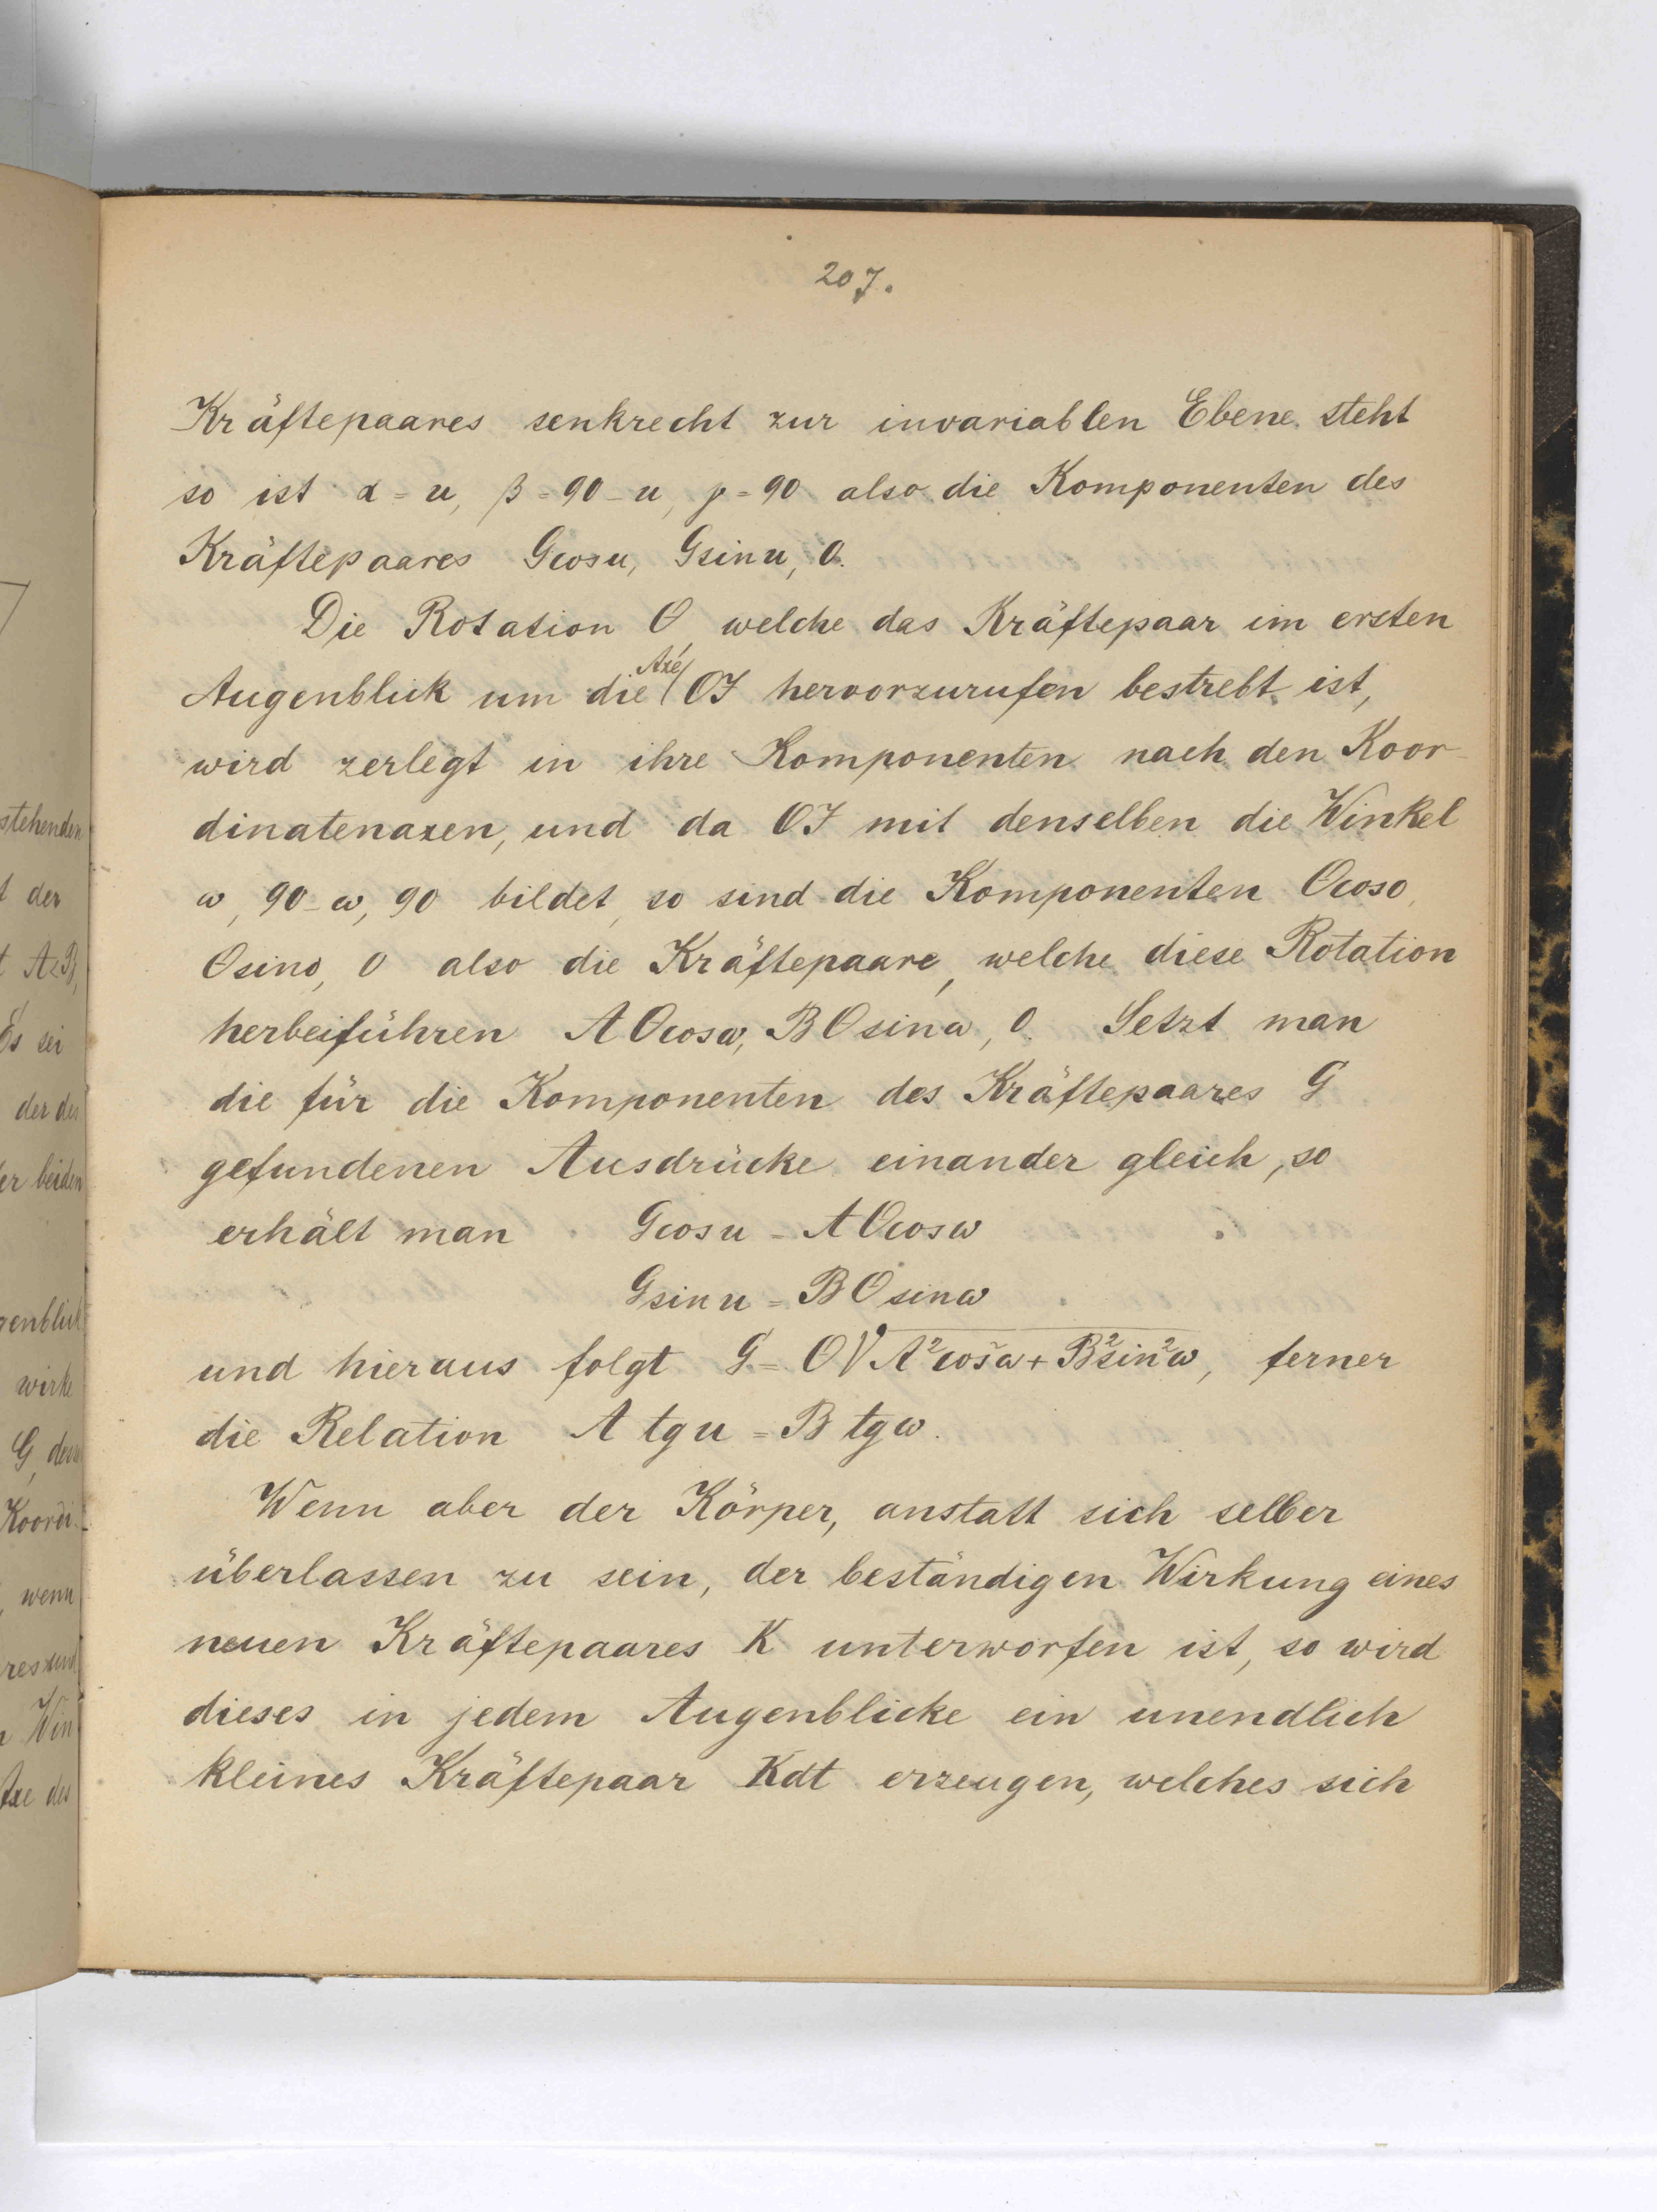 207.
Kräftepaares senkrecht zur invariablen Ebene steht
so ist α = u, β = 90 - u, γ = 90 also die Komponenten des
Kräftepaares Gcosu, Gsinu, 0.
Die Rotation O, welche das Kräftepaar im ersten
Augenblick um die Axe OI hervorzurufen bestrebt ist,
wird zerlegt in ihre Komponenten nach den Koor-
dinatenaxen, und da OI mit denselben die Winkel
ω, 90 - ω, 90 bildet, so sind die Komponenten Ocoso,
Osino, 0 also die Kräftepaare, welche diese Rotation
herbeiführen AOcosω, BOsinω, 0. Setzt man
die für die Komponenten des Kräftepaares G
gefundenen Ausdrücke einander gleich, so
erhält man Gcosu = AOcosω
Gsinu = BOsinω
und hieraus folgt G = O√A²cos²ω + B²sin²ω, ferner
die Relation A tgu = B tgω.
Wenn aber der Körper, anstatt sich selber
überlassen zu sein, der beständigen Wirkung eines
neuen Kräftepaares K unterworfen ist, so wird
dieses in jedem Augenblicke ein unendlich
kleines Kräftepaar Kdt erzeugen, welches sich
stehenden
der
A<B,
Es sei
der der
beiden
wirke
G,
Koordi-
wenn
Win
des